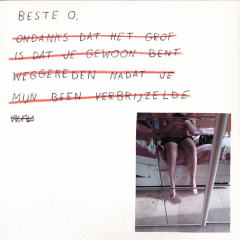 BESTE O,
ONDANKS DAT HET GROF
IS DAT JE GEWOON BENT
WEGGEREDEN NADAT JE
MIJN BEEN VERBRIJZELDE